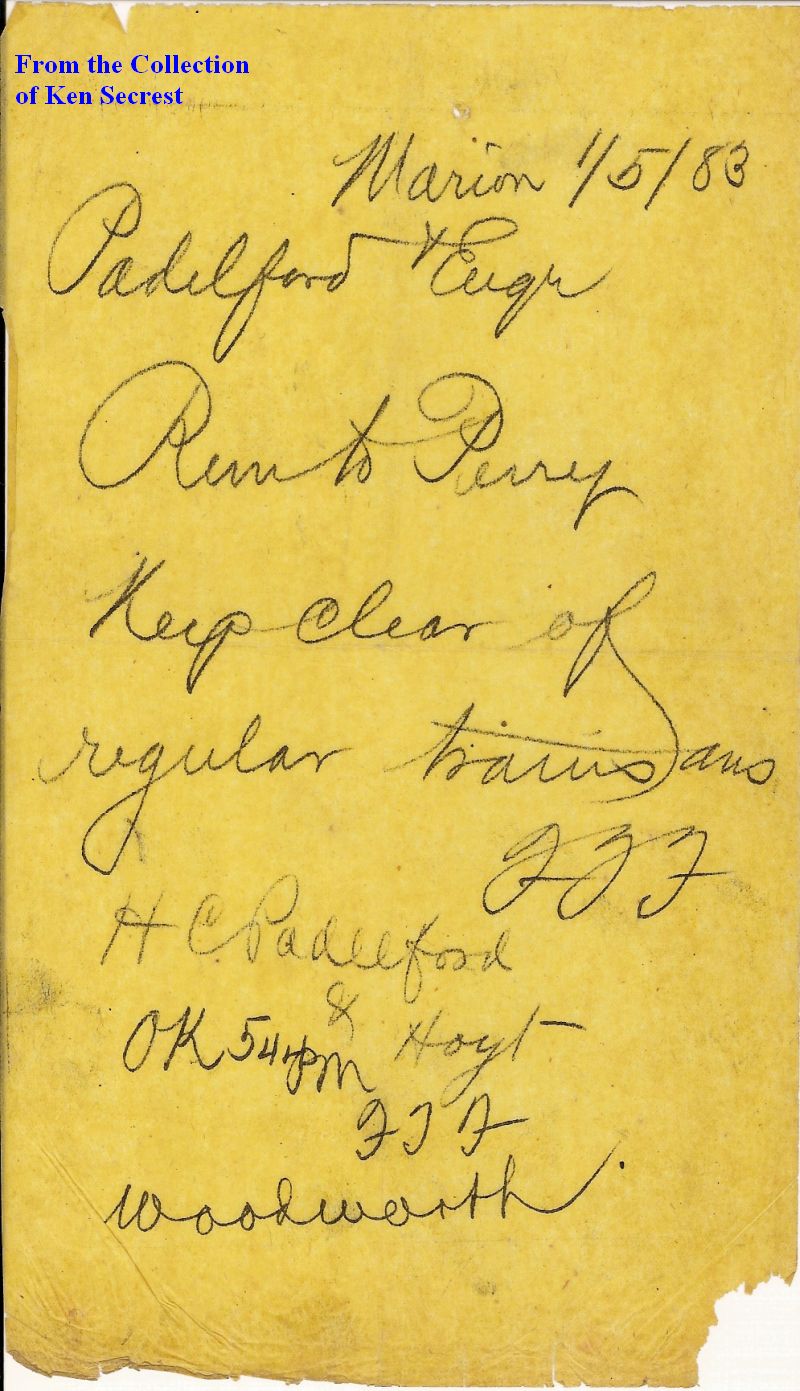 From the Collection
of Ken Secrest
Marion 1/5/83
Padelford & Engr
Run to Perry
Keep clear of
regular trains ans
FJF
H C. Padelford
&
OK 544 PM Hoyt
FJF
Woodworth.